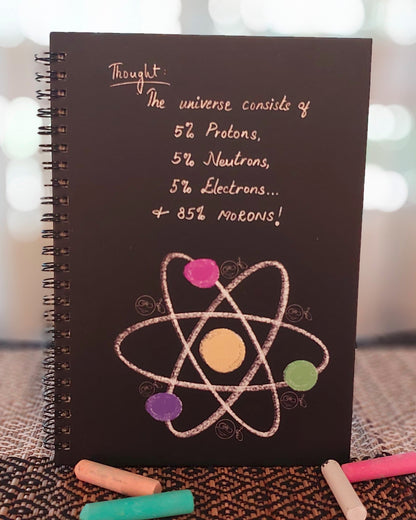 Thought:
The universe consists of
5% Protons,
5% Neutrons,
5% Electrons...
& 85% MORONS!